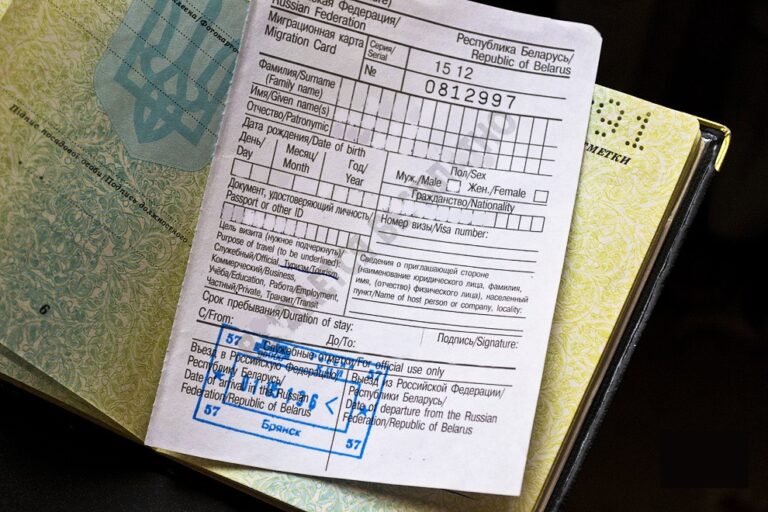 Российская Федерация/
Russian Federation
Республика Беларусь/
Republic of Belarus
Миграционная карта
Migration Card
Серия/
Serial
15 12
№
0812997
Фамилия/Surname
(Family name)
Имя/Given name(s)
Отчество/Patronymic
Дата рождения/Date of birth
День/
Day
Месяц/
Month
Год/
Year
Пол/Sex
Муж./Male
Жен./Female
Гражданство/Nationality
Документ, удостоверяющий личность/
Passport or other ID
Номер визы/Visa number:
Цель визита (нужное подчеркнуть)/
Purpose of travel (to be underlined):
Служебный/Official, Туризм/Tourism,
Коммерческий/Business,
Учёба/Education, Работа/Employment,
Частный/Private, Транзит/Transit
Сведения о приглашающей стороне
(наименование юридического лица, фамилия,
имя, (отчество) физического лица), населенный
пункт/Name of host person or company, locality:
Срок пребывания/Duration of stay:
С/From:
До/To:
Подпись/Signature:
Служебные отметки/For official use only
Въезд в Российскую Федерацию/
Республику Беларусь/
Date of arrival in the Russian
Federation/Republic of Belarus
Выезд из Российской Федерации/
Республики Беларусь/
Date of departure from the Russian
Federation/Republic of Belarus
57
57
57
57
Брянск
6
Підпис посадової особи/Подпись должностного